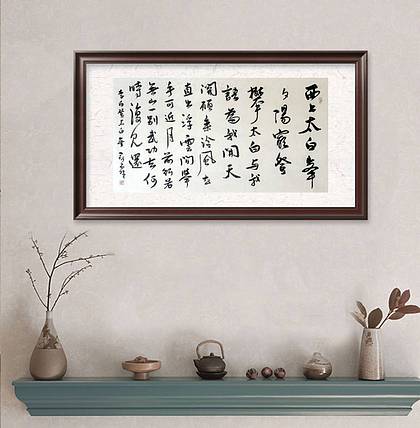 西上太白峯
夕陽窮登
攀太白與我
語為我開天
關願乘泠風去
直出浮雲間舉
手可近月前行若
無山一別武功去何
時復見還
李白登太白峯